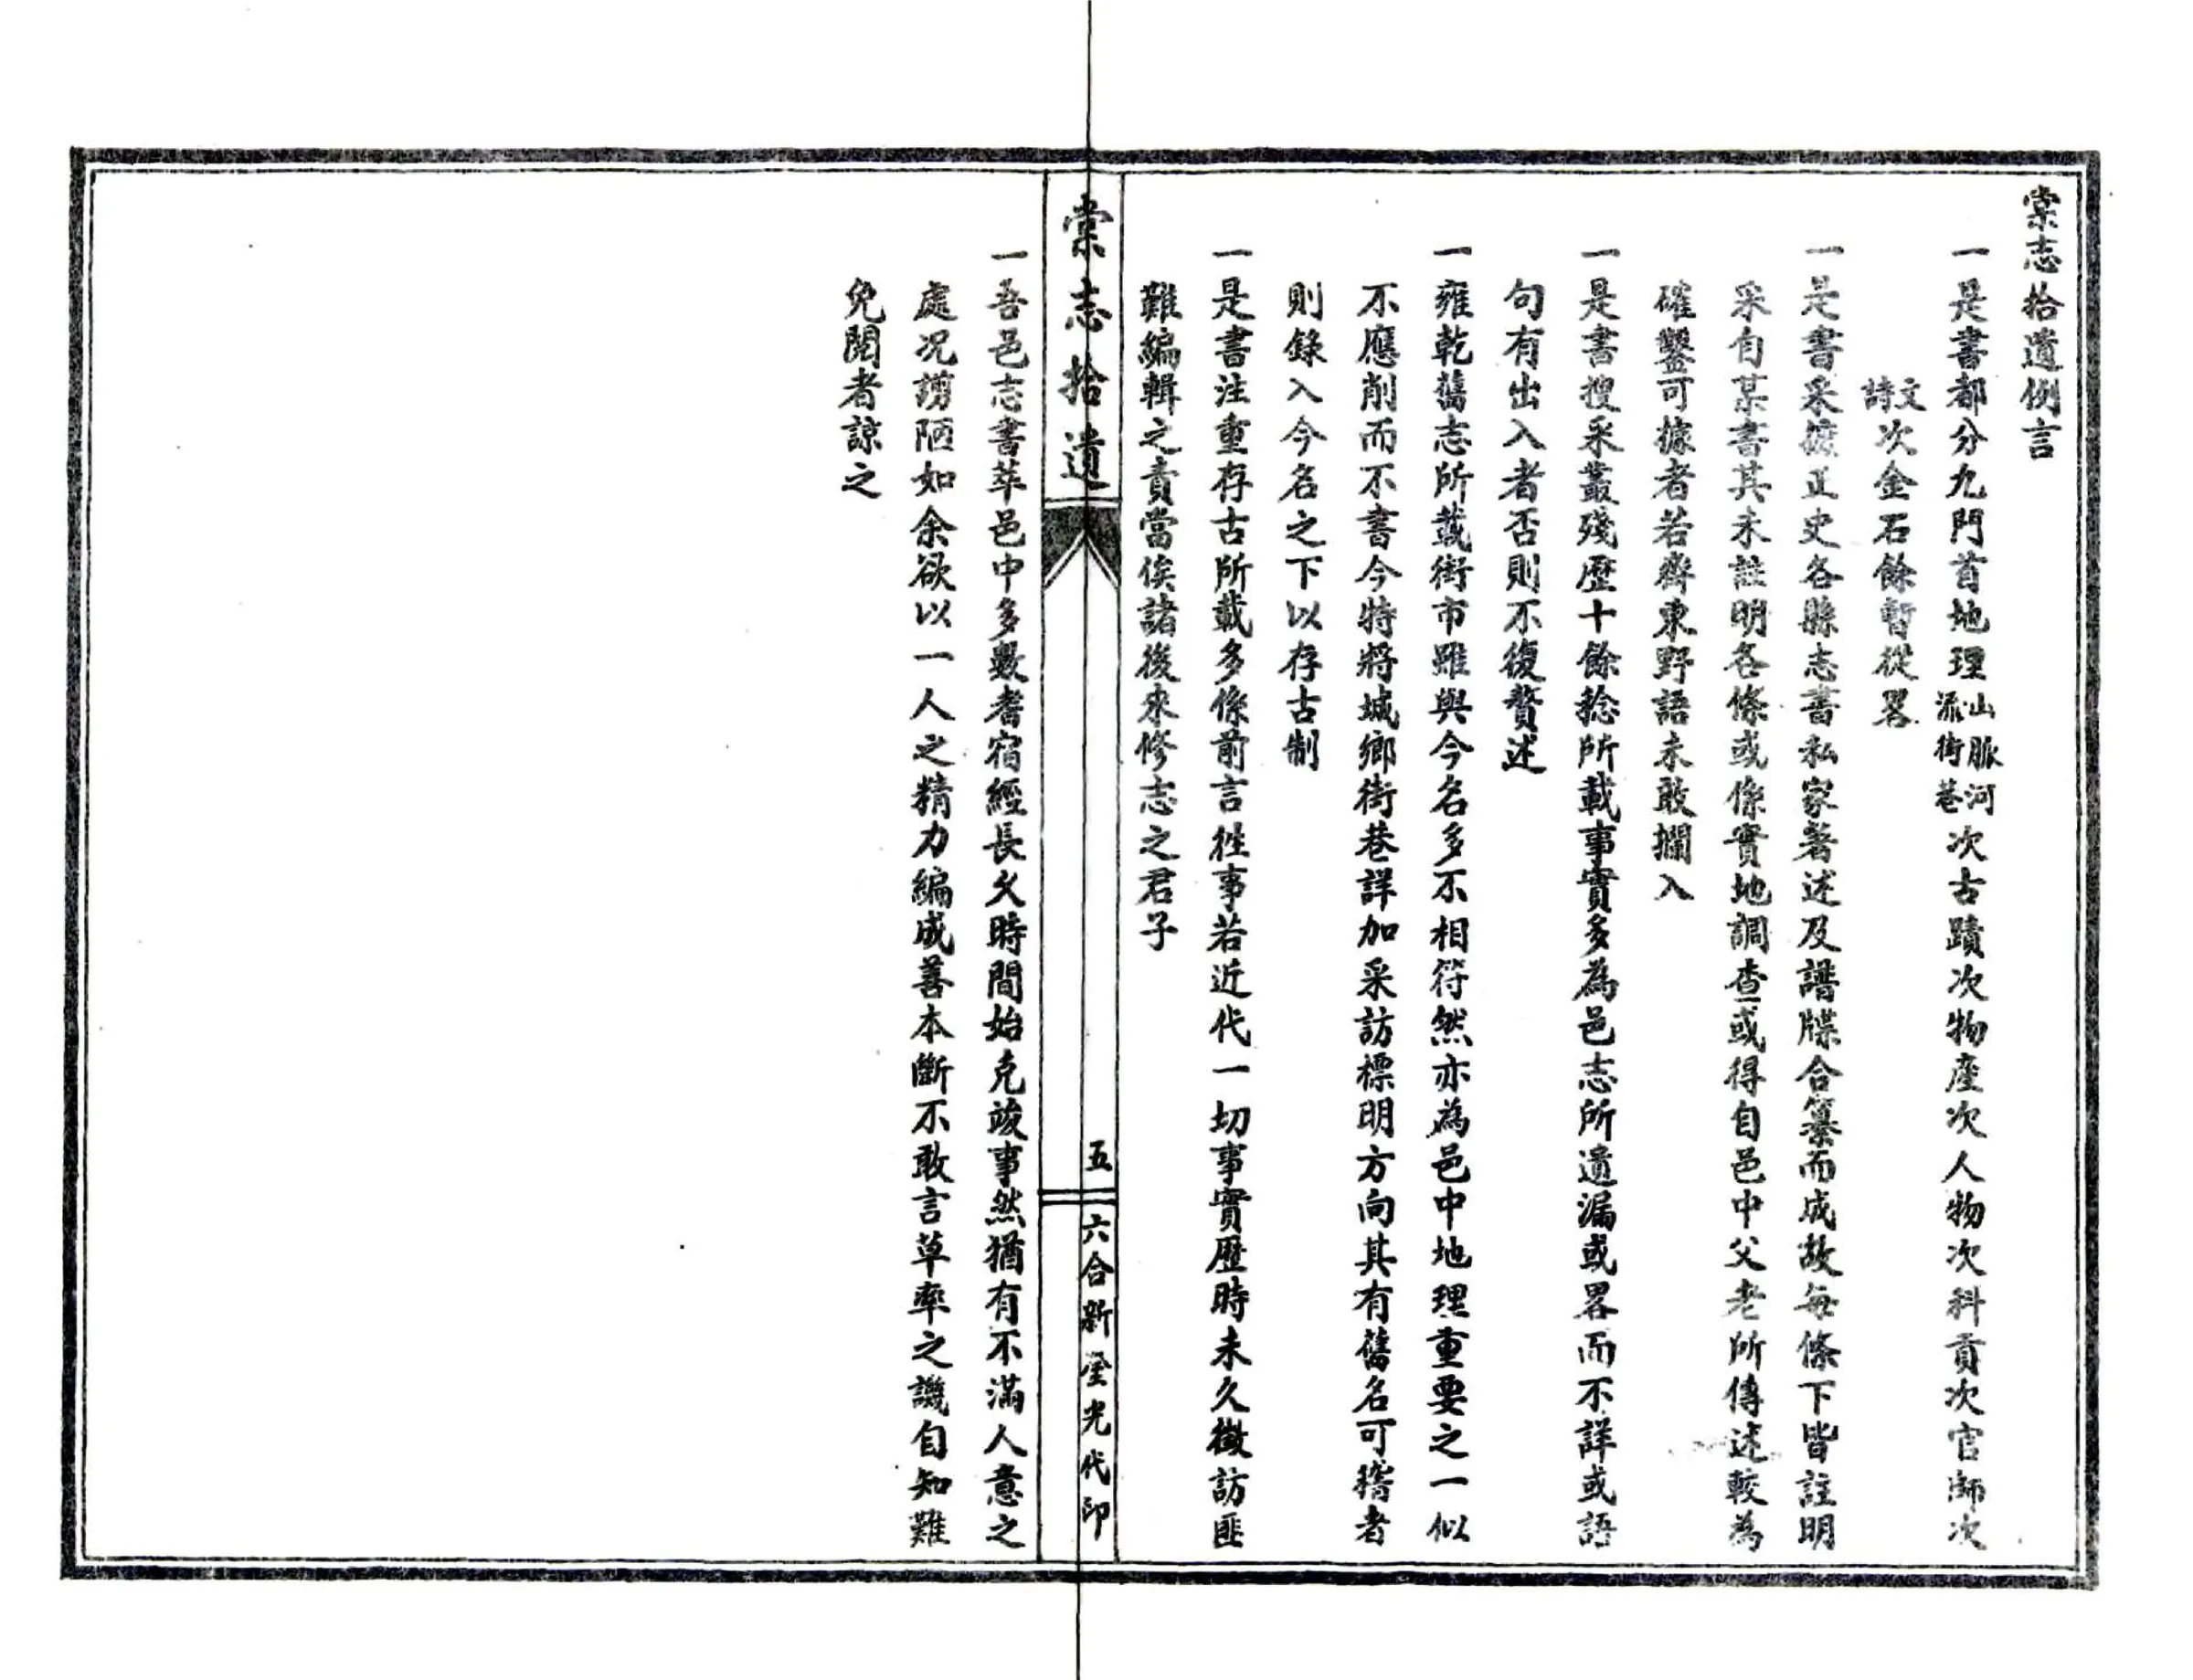 棠志拾遺例言
一是書都分九門首地理山脈河流街巷次古蹟次物產次人物次科貢次官師次
文詩次金石餘暫從畧
一是書采摭正史各縣志書私家著述及譜牒合纂而成故每條下皆註明
采自某書其未註明各條或係實地調查或得自邑中父老所傳述較為
確鑿可據者若齊東野語未敢攔入
一是書搜采叢殘歷十餘稔所載事實多為邑志所遺漏或畧而不詳或語
句有出入者否則不復贅述
一雍乾舊志所載街市雖與今名多不相符然亦為邑中地理重要之一似
不應削而不書今特將城鄉街巷詳加采訪標明方向其有舊名可稽者
則錄入今名之下以存古制
一是書注重存古所載多係前言往事若近代一切事實歷時未久徵訪匪
難編輯之責當俟諸後來修志之君子
棠志拾遺
五
六合新 光代印
一吾邑志書萃邑中多數耆宿經長久時間始克竣事然猶有不滿人意之
處況謭陋如余欲以一人之精力編成善本斷不敢言草率之譏自知難
免閱者諒之